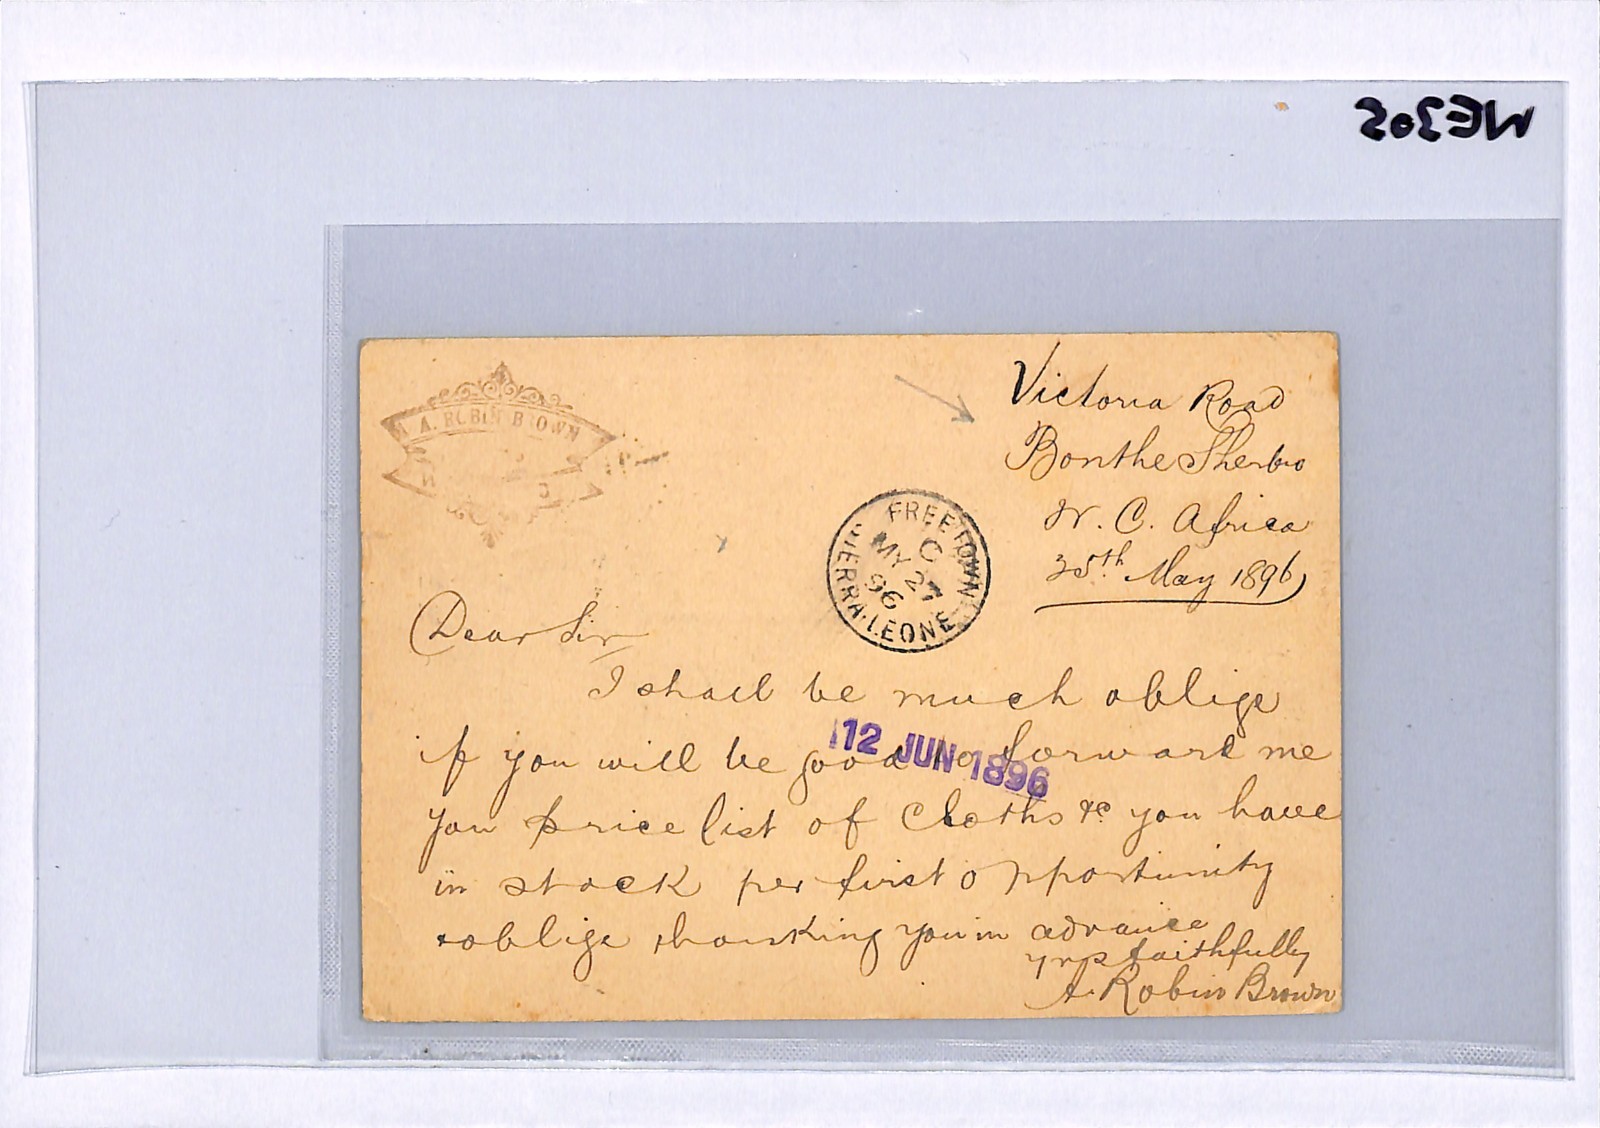 ME305
A. ROBIN BROWN
Victoria Road
Bonthe Sherbro
W. C. Africa
25th May 1896
FREETOWN
C
MY 27
96
SIERRA-LEONE
Dear Sir
I shall be much oblige
if you will be good to forward me
12 JUN 1896
you price list of Cloths &c you have
in stock per first opportunity
& oblige thanking you in advance
yrs faithfully
A. Robin Brown